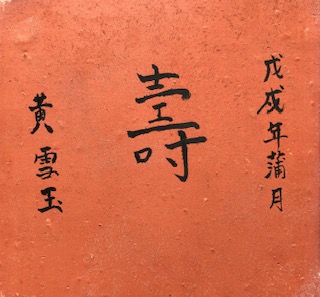 戊戌年蒲月
壽
黃雪玉